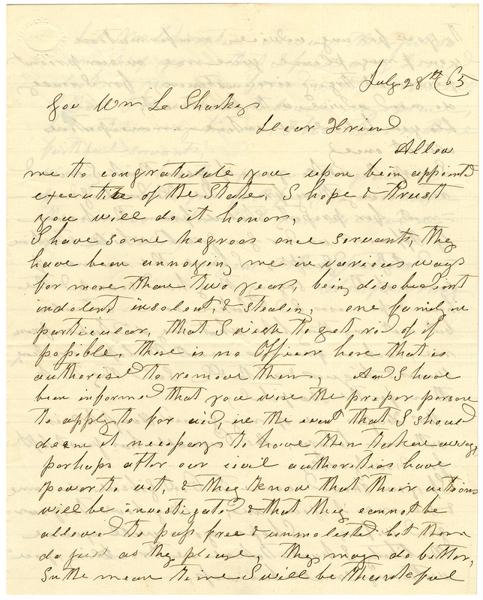 July 28th /65
Gov Wm L Sharkey
Dear Friend
Allow
me to congratulate you upon bein appointd
executive of the State, I hope & trust
you will do it honor,
I have some negroes once servant, they
have been annoying me in various ways
for more than two years, being disobedient
indolent insolent, & stealin, one family in
particular, that I wish to get rid of if
possible, there is no Officer here that is
authorised to remove them, And I have
been informed that you wire the proper person
to apply to for aid, in the event that I should
deem it necessary to have them taken away,
perhaps after our civil authorities have
power to act, & they know that their actions
will be investigated & that they cannot be
allowed to pass free & unmolested but them
do just as they please, they may do bitter,
In the mean time I will be thankful